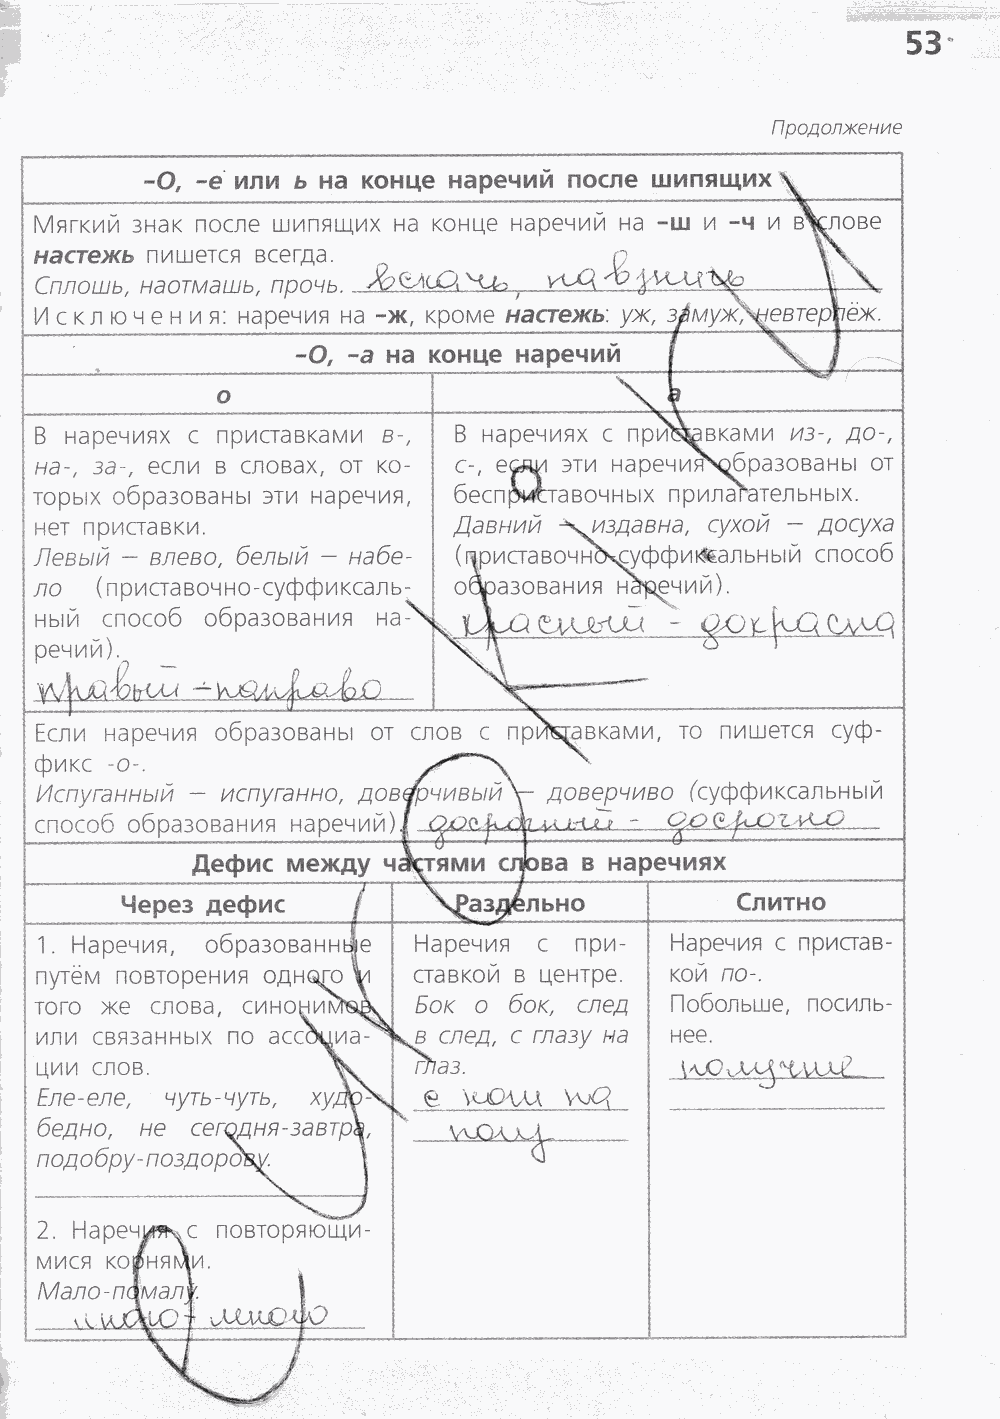 53
Продолжение
-О, -е или ь на конце наречий после шипящих
Мягкий знак после шипящих на конце наречий на -ш и -ч и в слове
настежь пишется всегда.
Сплошь, наотмашь, прочь. вскачь, навзничь
Исключения: наречия на -ж, кроме настежь: уж, замуж, невтерпёж.
-О, -а на конце наречий
о
В наречиях с приставками в-,
на-, за-, если в словах, от ко-
торых образованы эти наречия,
нет приставки.
Левый — влево, белый — набе-
ло (приставочно-суффиксаль-
ный способ образования на-
речий).
правый - направо
а
В наречиях с приставками из-, до-,
с-, если эти наречия образованы от
бесприставочных прилагательных.
Давний — издавна, сухой — досуха
(приставочно-суффиксальный способ
образования наречий).
красный - докрасна
Если наречия образованы от слов с приставками, то пишется суф-
фикс -о-.
Испуганный — испуганно, доверчивый — доверчиво (суффиксальный
способ образования наречий). досрочный - досрочно
Дефис между частями слова в наречиях
Через дефис
1. Наречия, образованные
путём повторения одного и
того же слова, синонимов
или связанных по ассоциа-
ции слов.
Еле-еле, чуть-чуть, худо-
бедно, не сегодня-завтра,
подобру-поздорову.
2. Наречия с повторяющи-
мися корнями.
Мало-помалу.
много-много
Раздельно
Наречия с при-
ставкой в центре.
Бок о бок, след
в след, с глазу на
глаз.
с ног на
голу
Слитно
Наречия с пристав-
кой по-.
Побольше, посиль-
нее.
получше